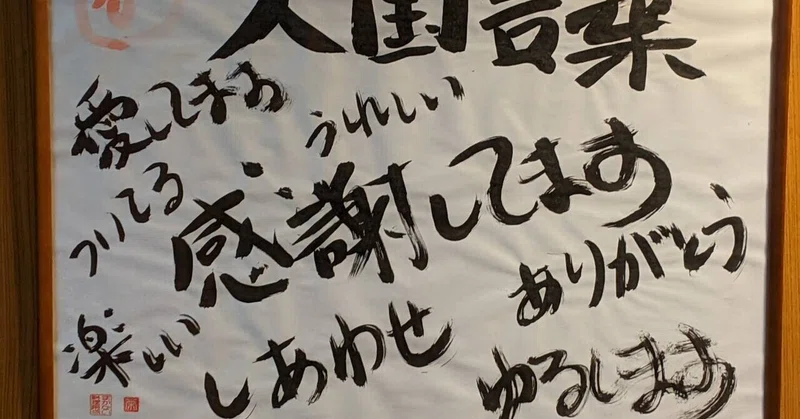 天国言葉
愛してます
うれしい
ツイてる
感謝してます
楽しい
しあわせ
ありがとう
ゆるします